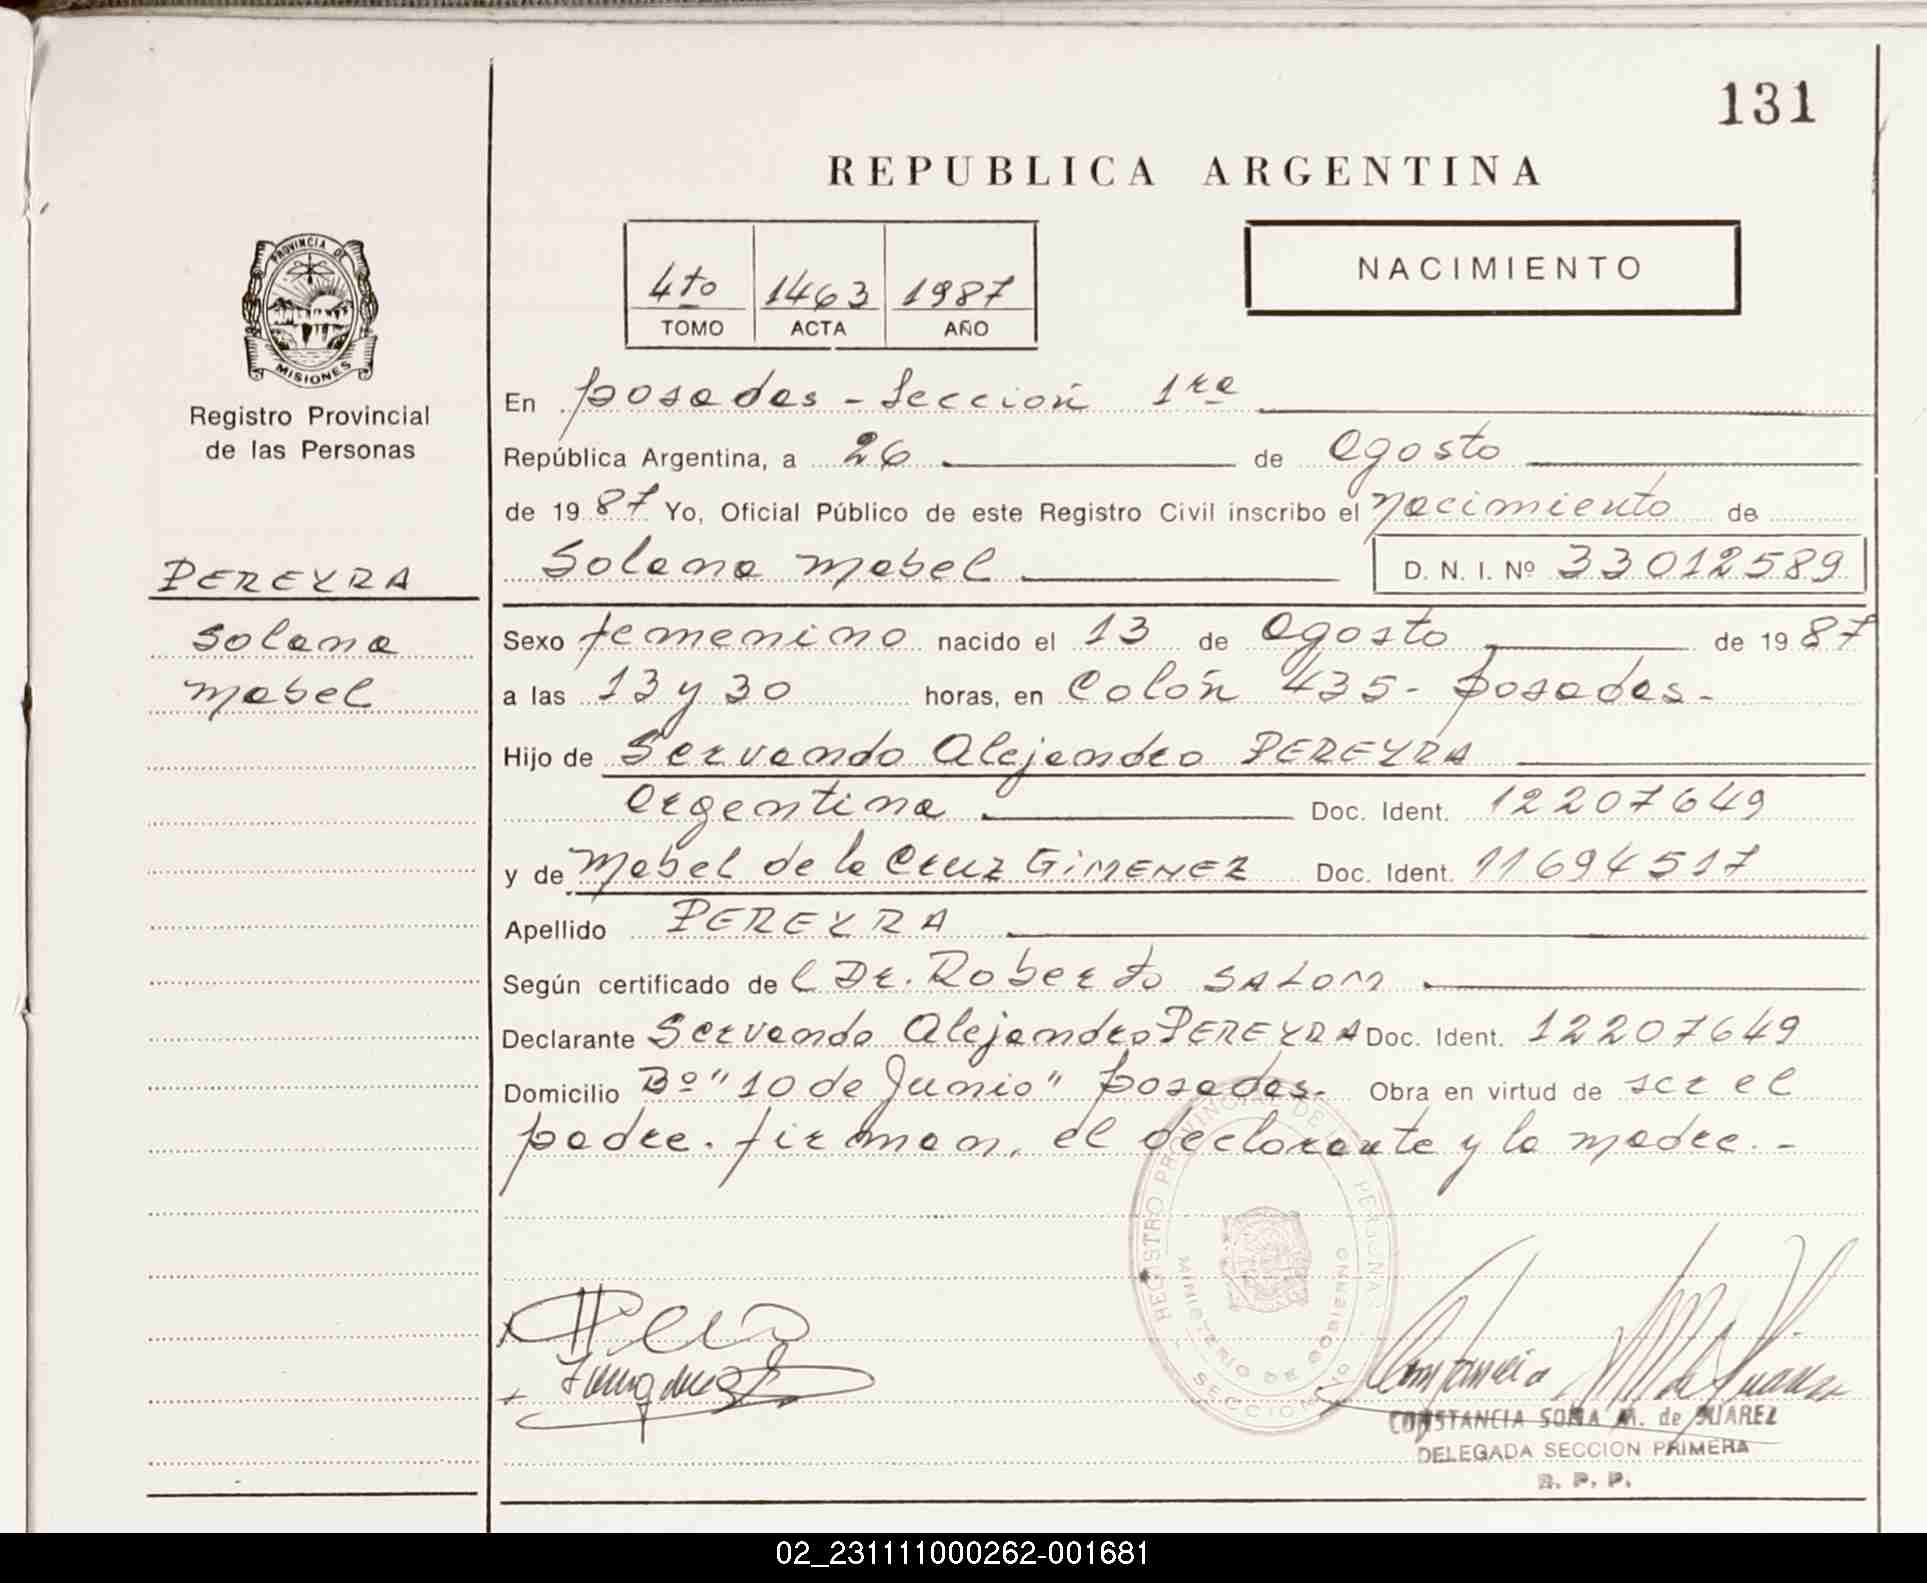 131
REPUBLICA ARGENTINA
4to 1463 1987
TOMO ACTA AÑO
NACIMIENTO
PROVINCIA DE
MISIONES
Registro Provincial
de las Personas
PEREYRA
Solana
Mabel
En Posadas - Sección 1ra
República Argentina, a 26 de Agosto
de 1987 Yo, Oficial Público de este Registro Civil inscribo el Nacimiento de
Solana Mabel D. N. I. Nº 33012589
Sexo femenino nacido el 13 de Agosto de 1987
a las 13 y 30 horas, en Colón 435 - Posadas -
Hijo de Servando Alejandro PEREYRA
Argentina Doc. Ident. 12207649
y de Mabel de la Cruz GIMENEZ Doc. Ident. 11694517
Apellido PEREYRA
Según certificado de l Dr. Roberto SALOM
Declarante Servando Alejandro PEREYRA Doc. Ident. 12207649
Domicilio Bº "10 de Junio" Posadas. Obra en virtud de ser el
padre. firman, el declarante y la madre. -
REGISTRO PROVINCIAL DE LAS PERSONAS
MINISTERIO DE GOBIERNO
Constancia M de Suarez
CONSTANCIA SONIA M. de SUAREZ
DELEGADA SECCION PRIMERA
R. P. P.
02_231111000262-001681